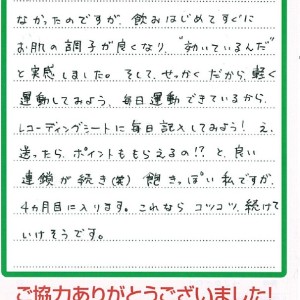 なかったのですが、飲みはじめてすぐに
お肌の調子が良くなり、"効いているんだ"
と実感しました。そして、せっかくだから、軽く
運動してみよう、毎日運動できているから、
レコーディングシートに毎日記入してみよう！え、
送ったら、ポイントももらえるの!?と、良い
連鎖が続き(笑) 飽きっぽい私ですが、
4ヵ月目に入ります。これなら コツコツ、続けて
いけそうです。
ご協力ありがとうございました！